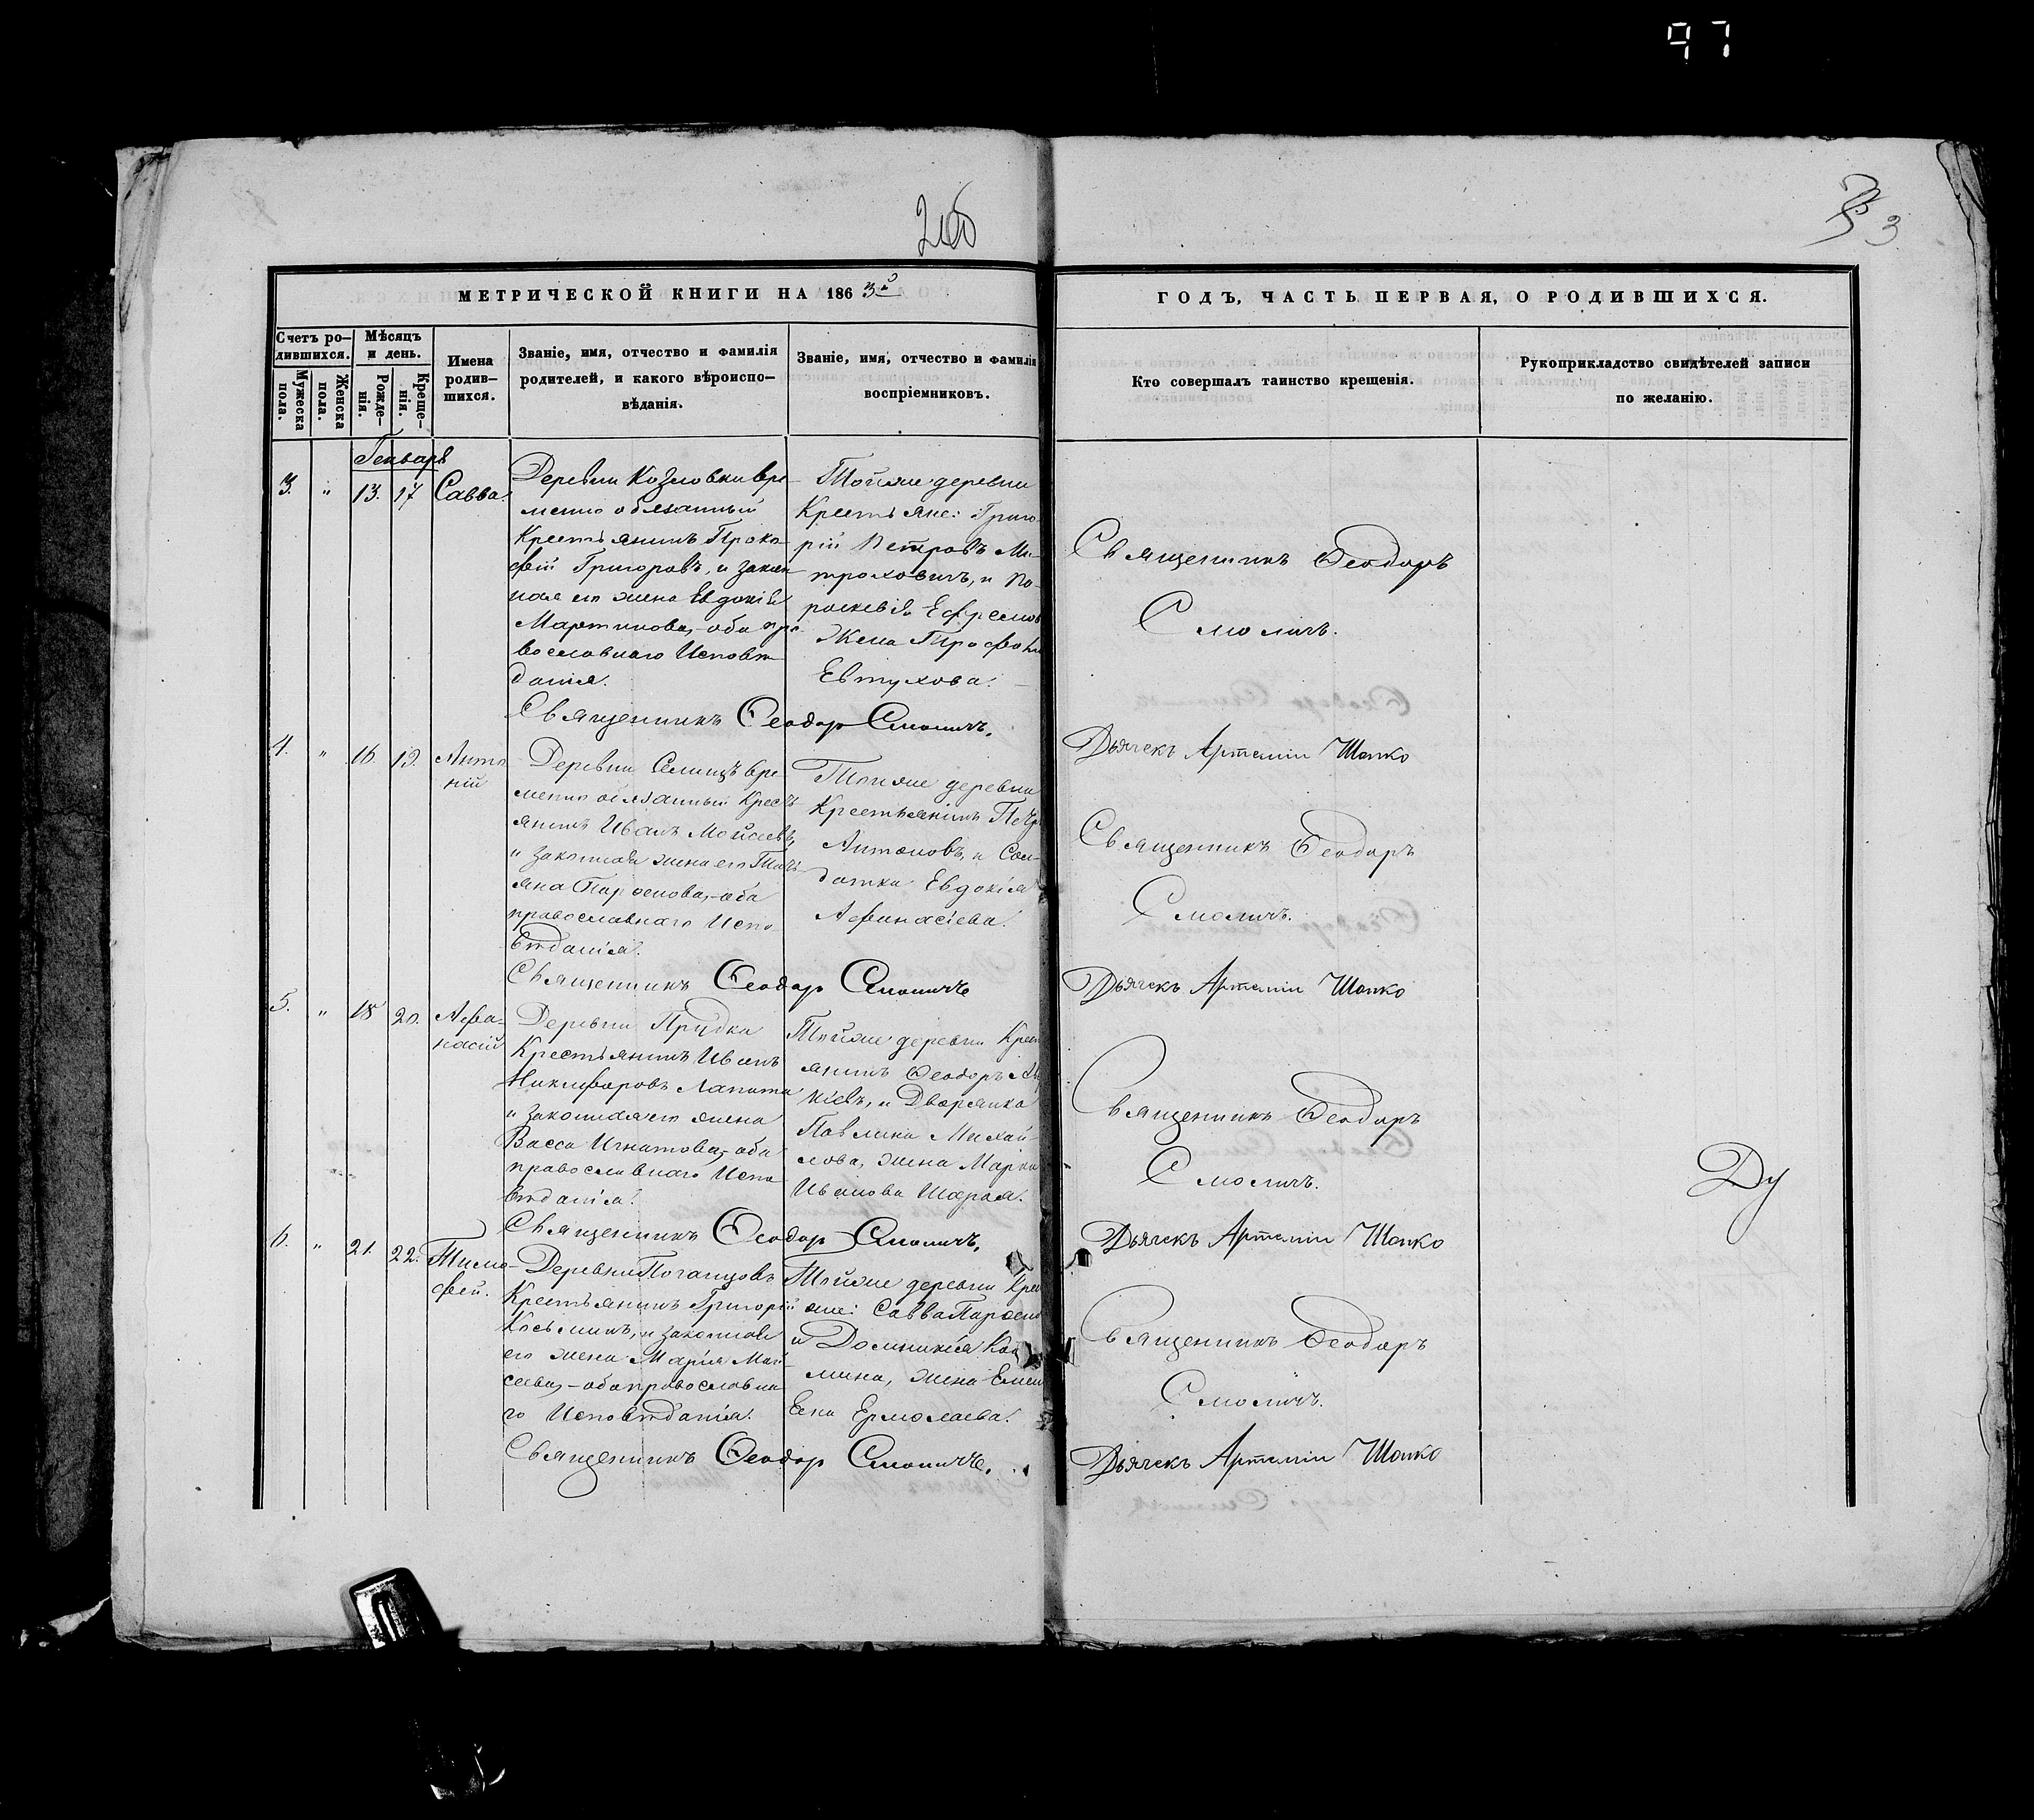 97
3
МЕТРИЧЕСКОЙ КНИГИ НА 1863й
ГОДЪ, ЧАСТЬ ПЕРВАЯ, О РОДИВШИХСЯ.
Счетъ ро-
дившихся.
Мужеска
пола.
Женска
пола.
Мѣсяцъ
и день.
Рожде-
нія.
Креще-
нія.
Имена
родив-
шихся.
Званіе, имя, отчество и фамилія
родителей, и какого вѣроиспо-
вѣданія.
Званіе, имя, отчество и фамилія
воспріемниковъ.
Кто совершалъ таинство крещенія.
Рукоприкладство свидѣтелей записи
по желанію.
Генварь
3. " 13. 17 Савва.
Деревни Козловки вре
менно обязанный
Крестьянинъ Проко
фій Григоровъ, и закон
ная его жена Евдокія
Мартинова, - оба пра
вославнаго Исповѣ
данія.
Тойже деревни
Крестьяне: Григо
рій Петровъ Ми-
троховичъ, и Па-
раскевія Ефремов
Жена
Евтухова.
Священникъ Ѳеодоръ Смоличъ.
Священникъ Ѳеодоръ
Смоличъ.
Дьячекъ Артемій Шапко
4. " 16. 19. Анто
ній
Деревни Селищъ вре
менно обязанный Крест
янинъ Иванъ Мойсеевъ,
и законная жена его Тать
яна Парѳенова, - оба
православнаго Испо
вѣданія.
Тойже деревни
Крестьянинъ Петръ
Антоновъ, и Сол-
датка Евдокія
Афанасіева.
Священникъ Ѳеодоръ Смоличъ
Священникъ Ѳеодоръ
Смоличъ.
Дьячекъ Артемій Шапко
5. " 18 20. Афа-
насій
Деревни Прудка
Крестьянинъ Иванъ
Никифоровъ Лапата
и законная его жена
Васса Игнатова, - оба
православнаго Испо
вѣданія.
Тойже деревни Крест
янинъ Ѳеодоръ
кіевъ, и Дворянка
Павлина Михай
лова, жена Марка
Иванова Шарая.
Священникъ Ѳеодоръ Смоличъ.
Священникъ Ѳеодоръ
Смоличъ.
Ду
Дьячекъ Артемій Шапко
6. " 21. 22. Тимо
фей.
Деревни Поганцовъ
Крестьянинъ Григорій
Косьминъ, и законная
его жена Марія Мои
сеева, - оба православна
го Исповѣданія.
Тойже деревни Крес
яне: Савва Парѳен
и Домникія Коз
мина, жена Емел
яна Ермолаева.
Священникъ Ѳеодоръ Смоличъ.
Священникъ Ѳеодоръ
Смоличъ.
Дьячекъ Артемій Шапко